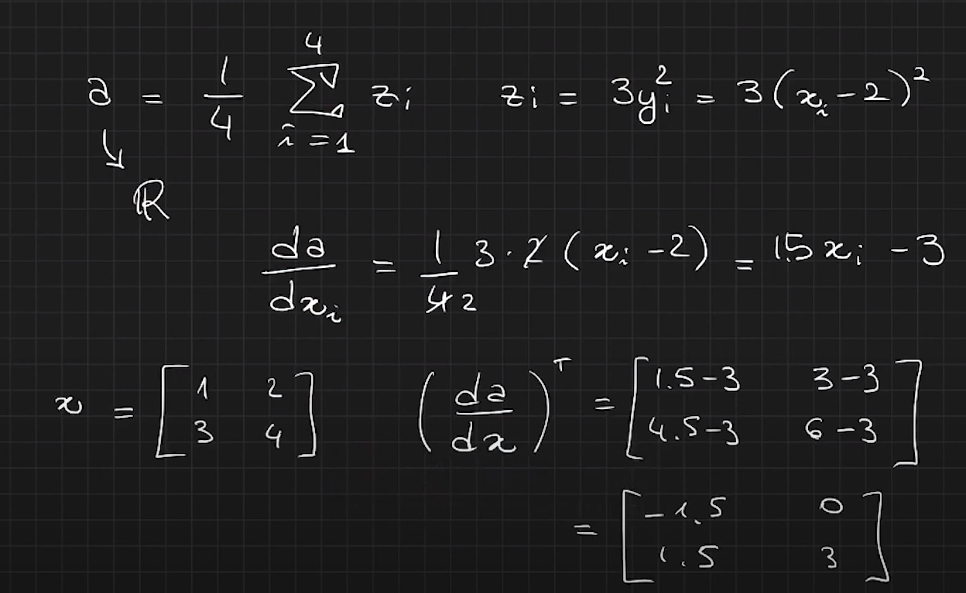 a = 1/4 ∑_{i=1}^{4} z_i    z_i = 3y_i^2 = 3(x_i - 2)^2
↳ ℝ
da/dx_i = 1/(4̸ 2) 3 · 2̸ (x_i - 2) = 1.5 x_i - 3
x = [1 2; 3 4]    (da/dx)^T = [1.5-3 3-3; 4.5-3 6-3]
= [-1.5 0; 1.5 3]